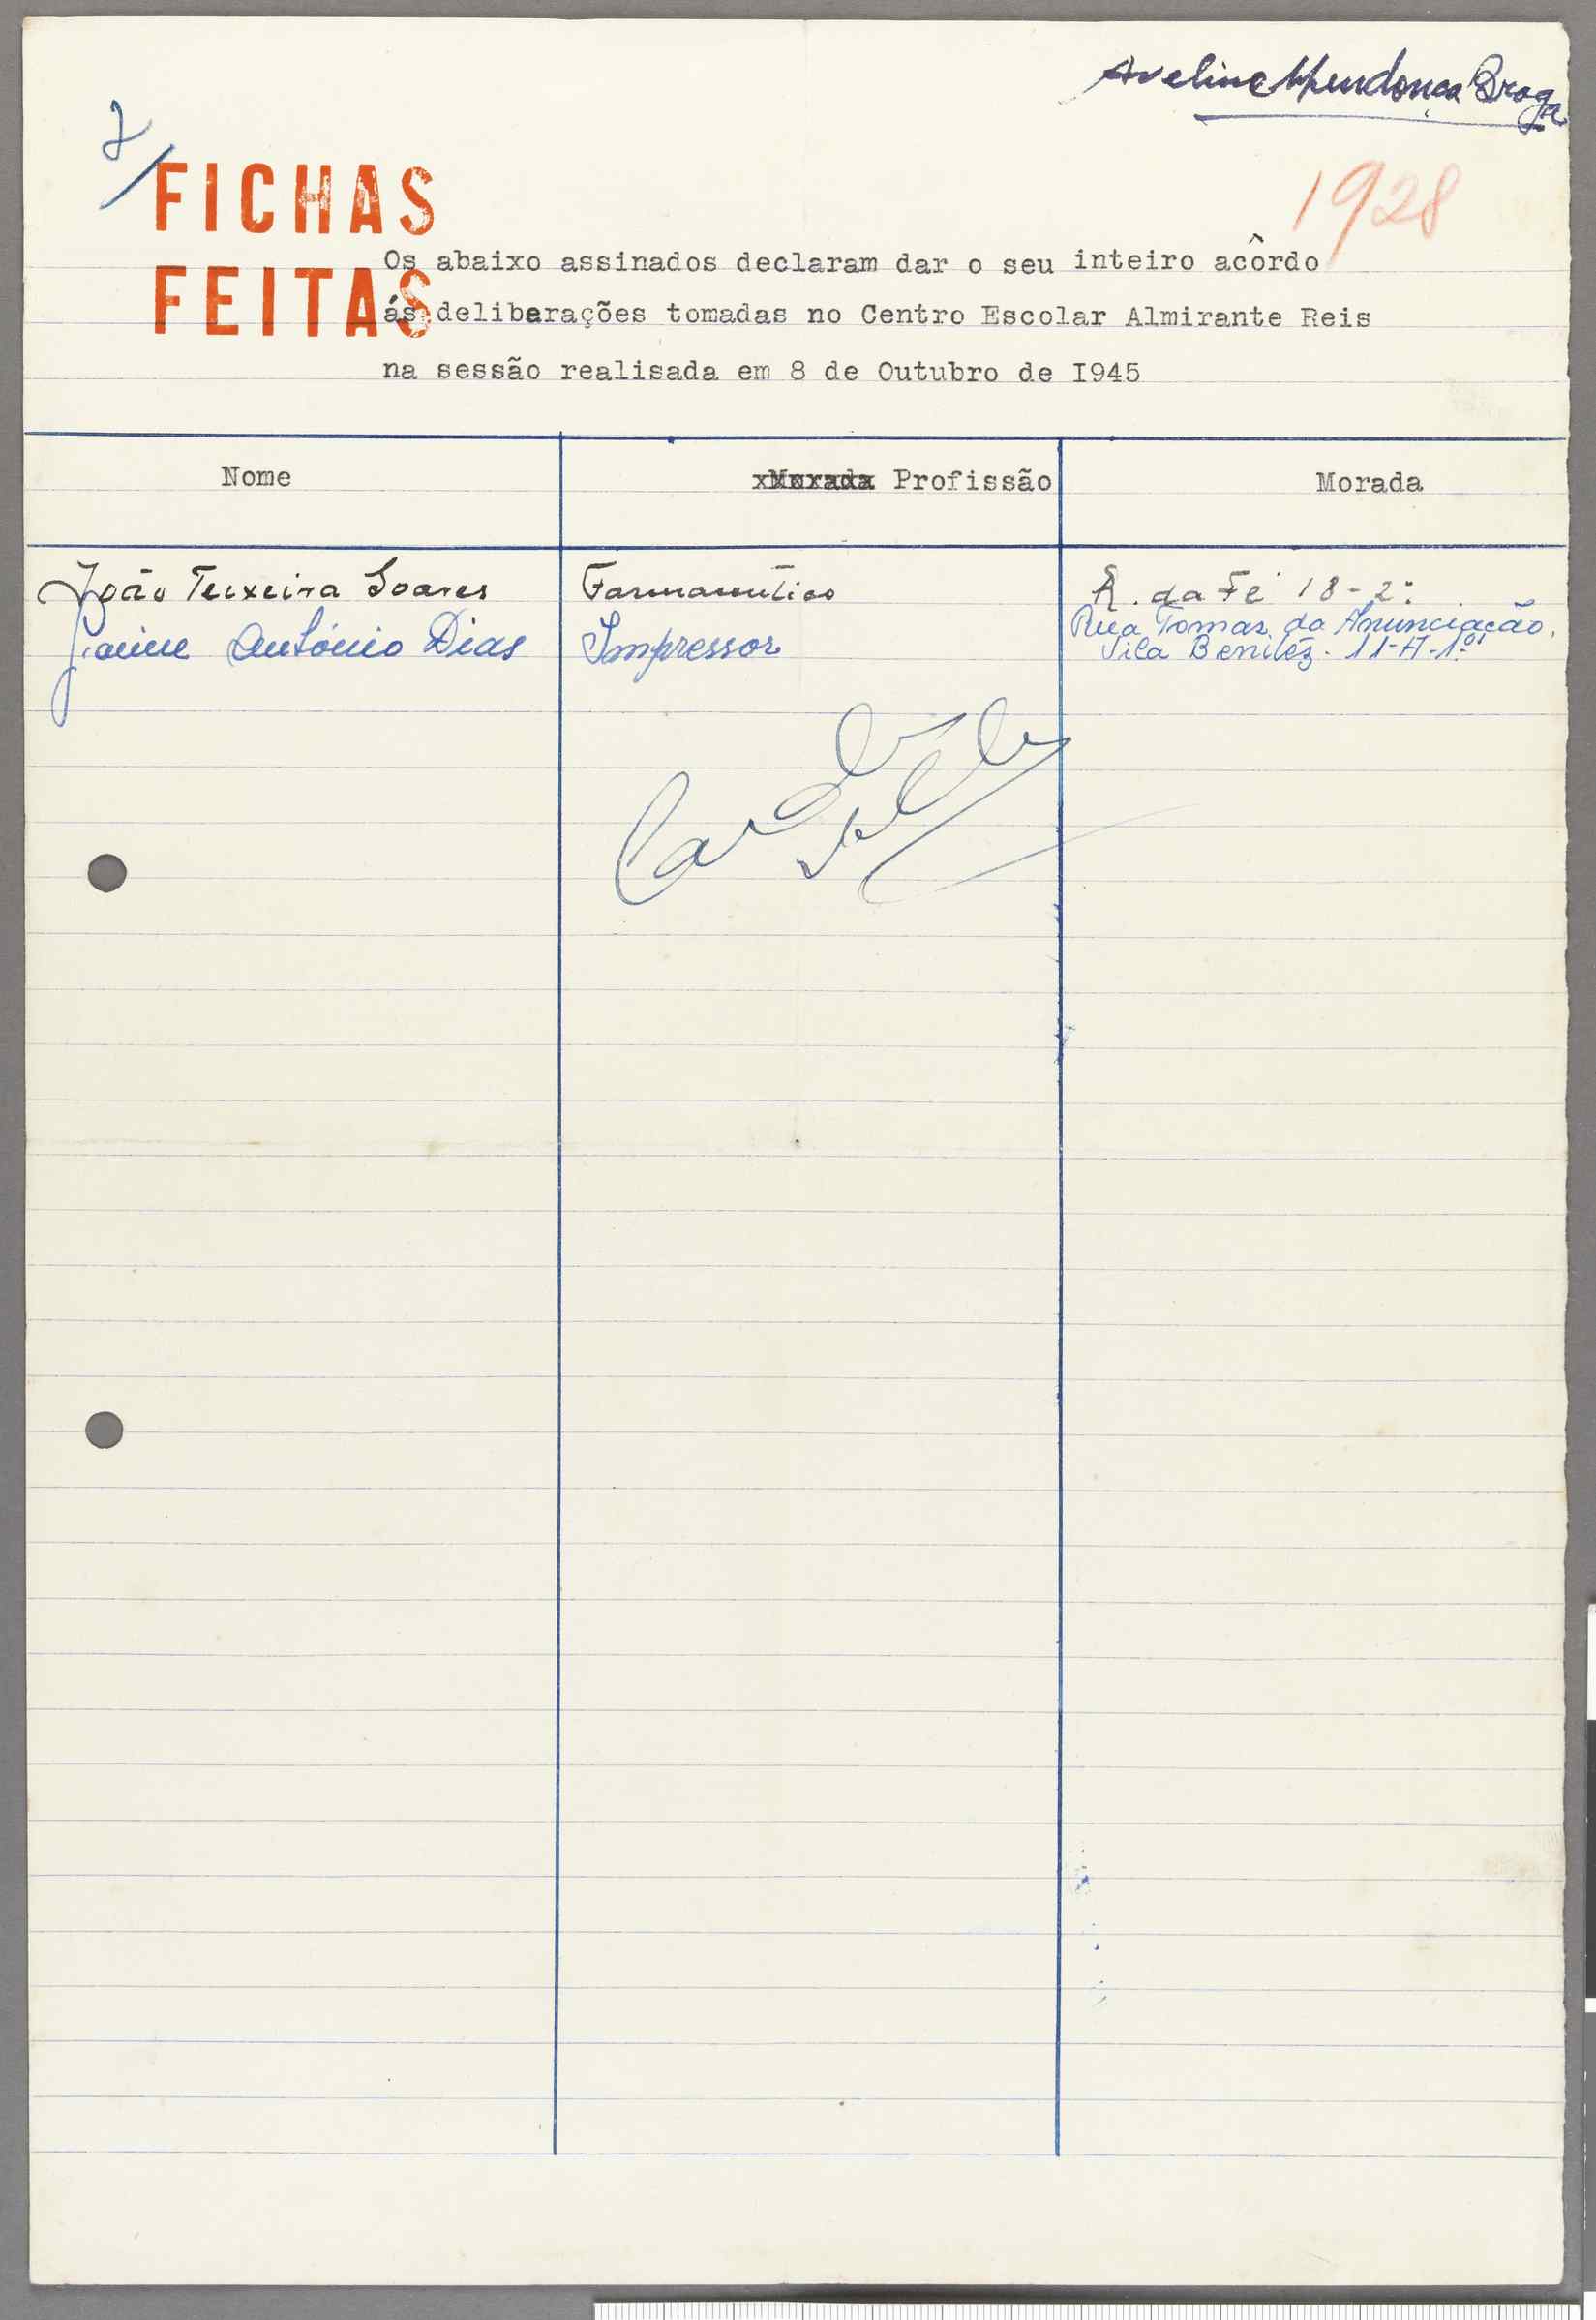 Avelino Mendonça Braga
2/
FICHAS
1928
Os abaixo assinados declaram dar o seu inteiro acôrdo
FEITAS
ás deliberações tomadas no Centro Escolar Almirante Reis
na sessão realisada em 8 de Outubro de I945
Nome Morada Profissão Morada
João Teixeira Soares Farmaceutico R. da Fé 18-2º
Jaime António Dias Impressor Rua Tomas da Anunciação,
Vila Benitez. 11-A-1º